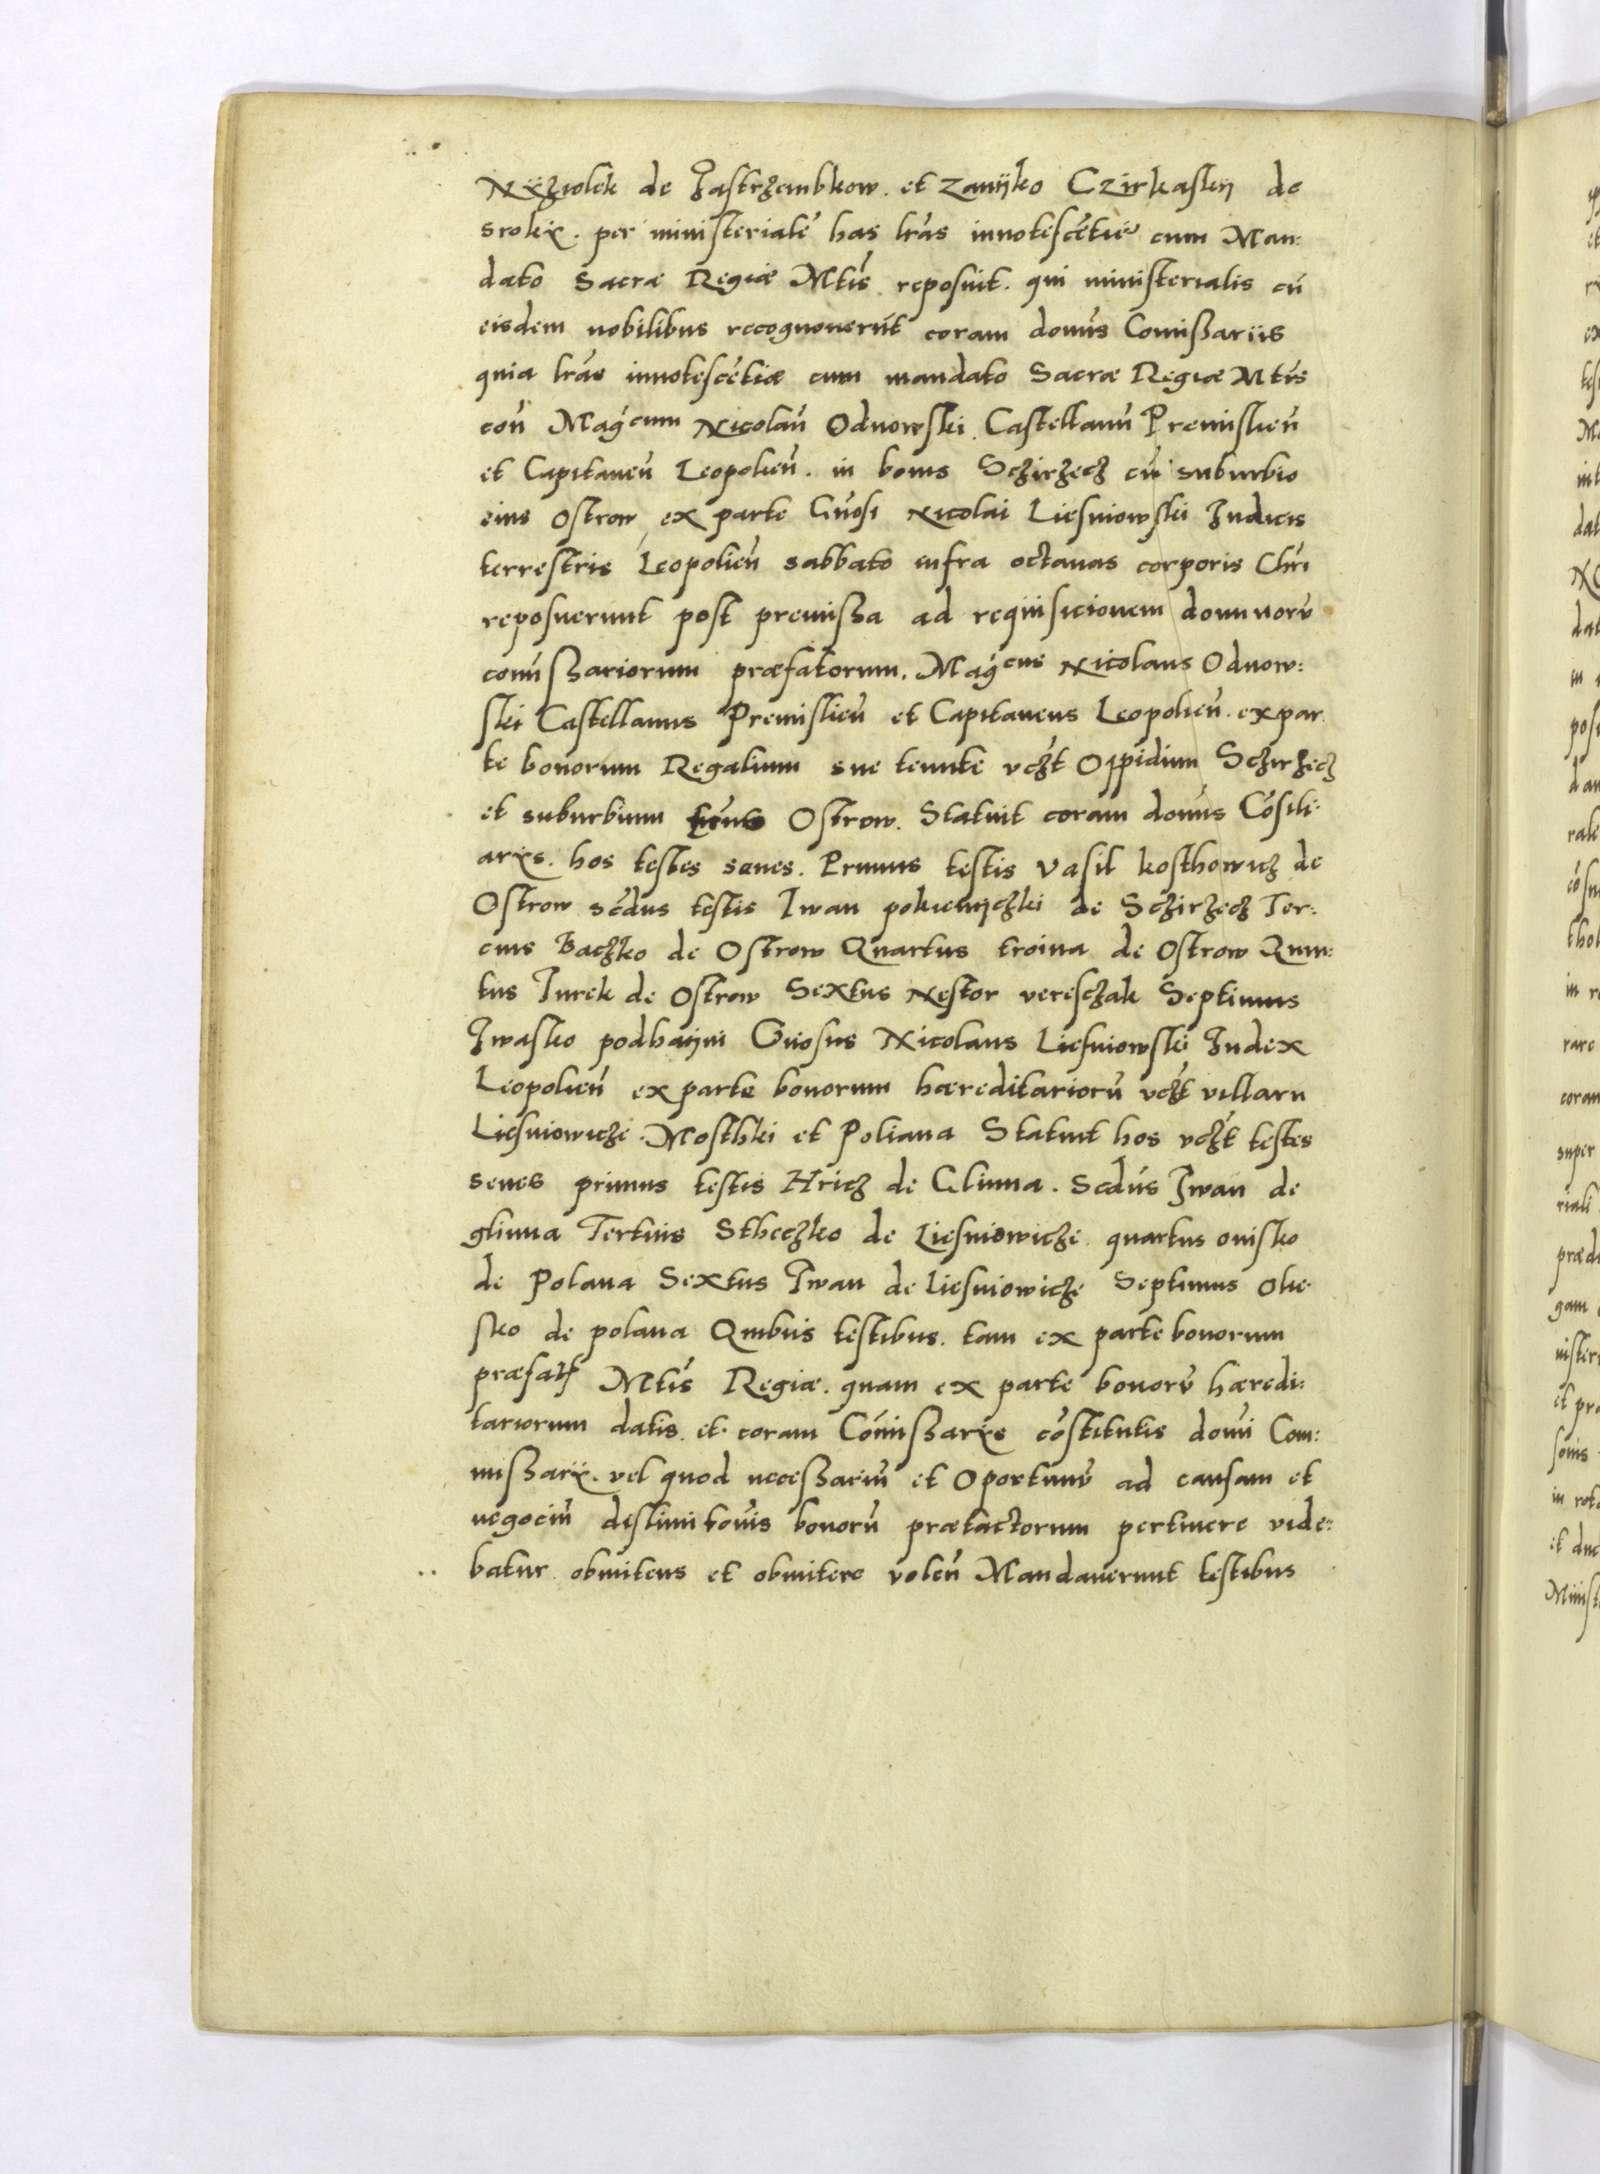 Nyzwlek de Jastrzembkow. et Zanijko Czirkaskij de
srokix. per ministerialē has lrās innotescētiē cum Man:
dato Sacræ Regiæ Mtis reposuit. qui ministerialis cū
eisdem nobilibus recognouerūt coram domīs Comissariis
quia lrās innotescētiæ cum mandato Sacræ Regiæ Mtis
con̄ Magcum Nicolaū Odnowski. Castellanū Premislien̄
et Capitaneū Leopolien̄. in bonis Schirzech cū suburbio
eius Ostrow ex parte Gn̄osi Nicolai Liesniowski Judicis
terrestris Leopolien̄ sabbato infra octauas corporis Chri
reposuerunt post premissa ad requisicionem dominorū
comissariorum præfatorum. Magcus Nicolaus Odnow:
ski Castellanus Premislien̄ et Capitaneus Leopolien̄. ex par
te bonorum Regalium sue tenute vczt Oppidum Schirzech
et suburbium Ostrow. Statuit coram domīs Cōsili:
arys. hos testes senes. Primus testis Vasil kosthowicz de
Ostrow scdus testis Iwan pokienyczki de Schirzech Ter:
cius Baczko de Ostrow Quartus troina de Ostrow Quin:
tus Iurek de Ostrow Sextus Nestor vereschak Septimus
Iwasko podhaijni Gn̄osus Nicolaus Liesniowski Judex
Leopolien̄ ex parte bonorum hæreditariorū vczt villaru
Liesniowicze. Mosthki et Poliana Statuit hos vczt testes
senes primus testis Hricz de Glinna. Scdus Iwan de
glinna Tertius Stheczko de Liesniowicze quartus onisko
de Polana Sextus Iwan de Liesniowicze Septimus Olie
sko de polana Quibus testibus. tam ex parte bonorum
præfat Mtis Regiæ. quam ex parte bonorū hæredi:
tariorum datis. et coram Cōmissarys cōstitutis domi Com:
missarii. vel quod necessariū et Oportunū ad causam et
negociū destimitonis bonorū prætactorum pertinere vide:
batur. obmitens et obmitere volen̄ Mandauerunt testibus